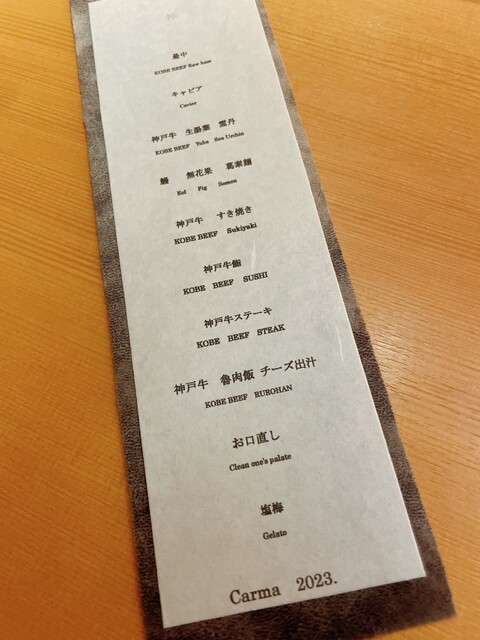 神
最中
KOBE BEEF Raw ham
キャビア
Caviar
神戸牛 生湯葉 雲丹
KOBE BEEF Yuba Sea Urchin
鰻 無花果 葛素麺
Eel Fig Somen
神戸牛 すき焼き
KOBE BEEF Sukiyaki
神戸牛鮨
KOBE BEEF SUSHI
神戸牛ステーキ
KOBE BEEF STEAK
神戸牛 魯肉飯 チーズ出汁
KOBE BEEF RUROHAN
お口直し
Clean one's palate
塩梅
Gelato
Carma 2023.